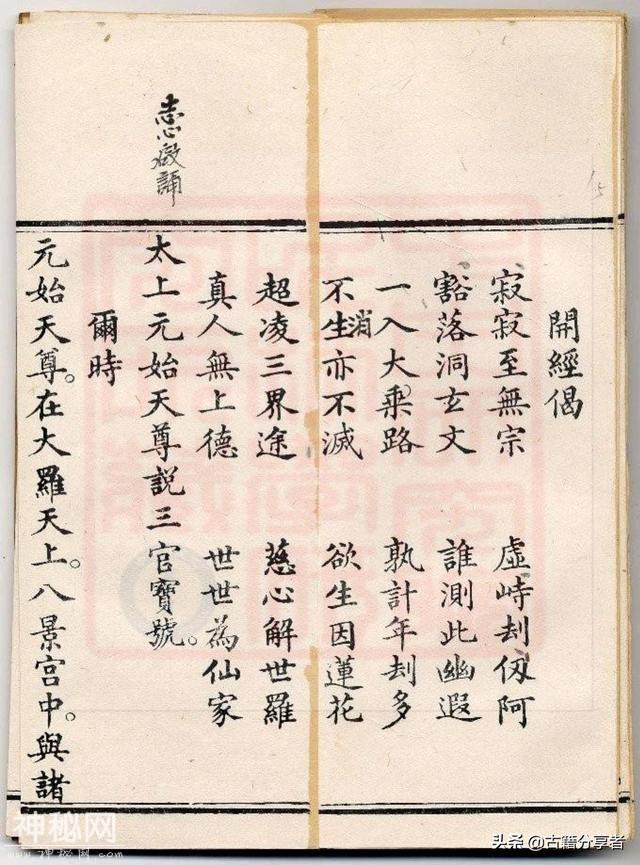 開經偈
寂寂至無宗 虛峙刦仞阿
豁落洞玄文 誰測此幽遐
一入大乘路 孰計年刦多
不生亦不滅 欲生因蓮花
消
超凌三界途 慈心解世羅
真人無上德 世世為仙家
志心誦
太上元始天尊説三官寶號。
爾時
元始天尊。在大羅天上。八景宮中。與諸
神秘网
www.神秘网.com
头条 @古籍分享者